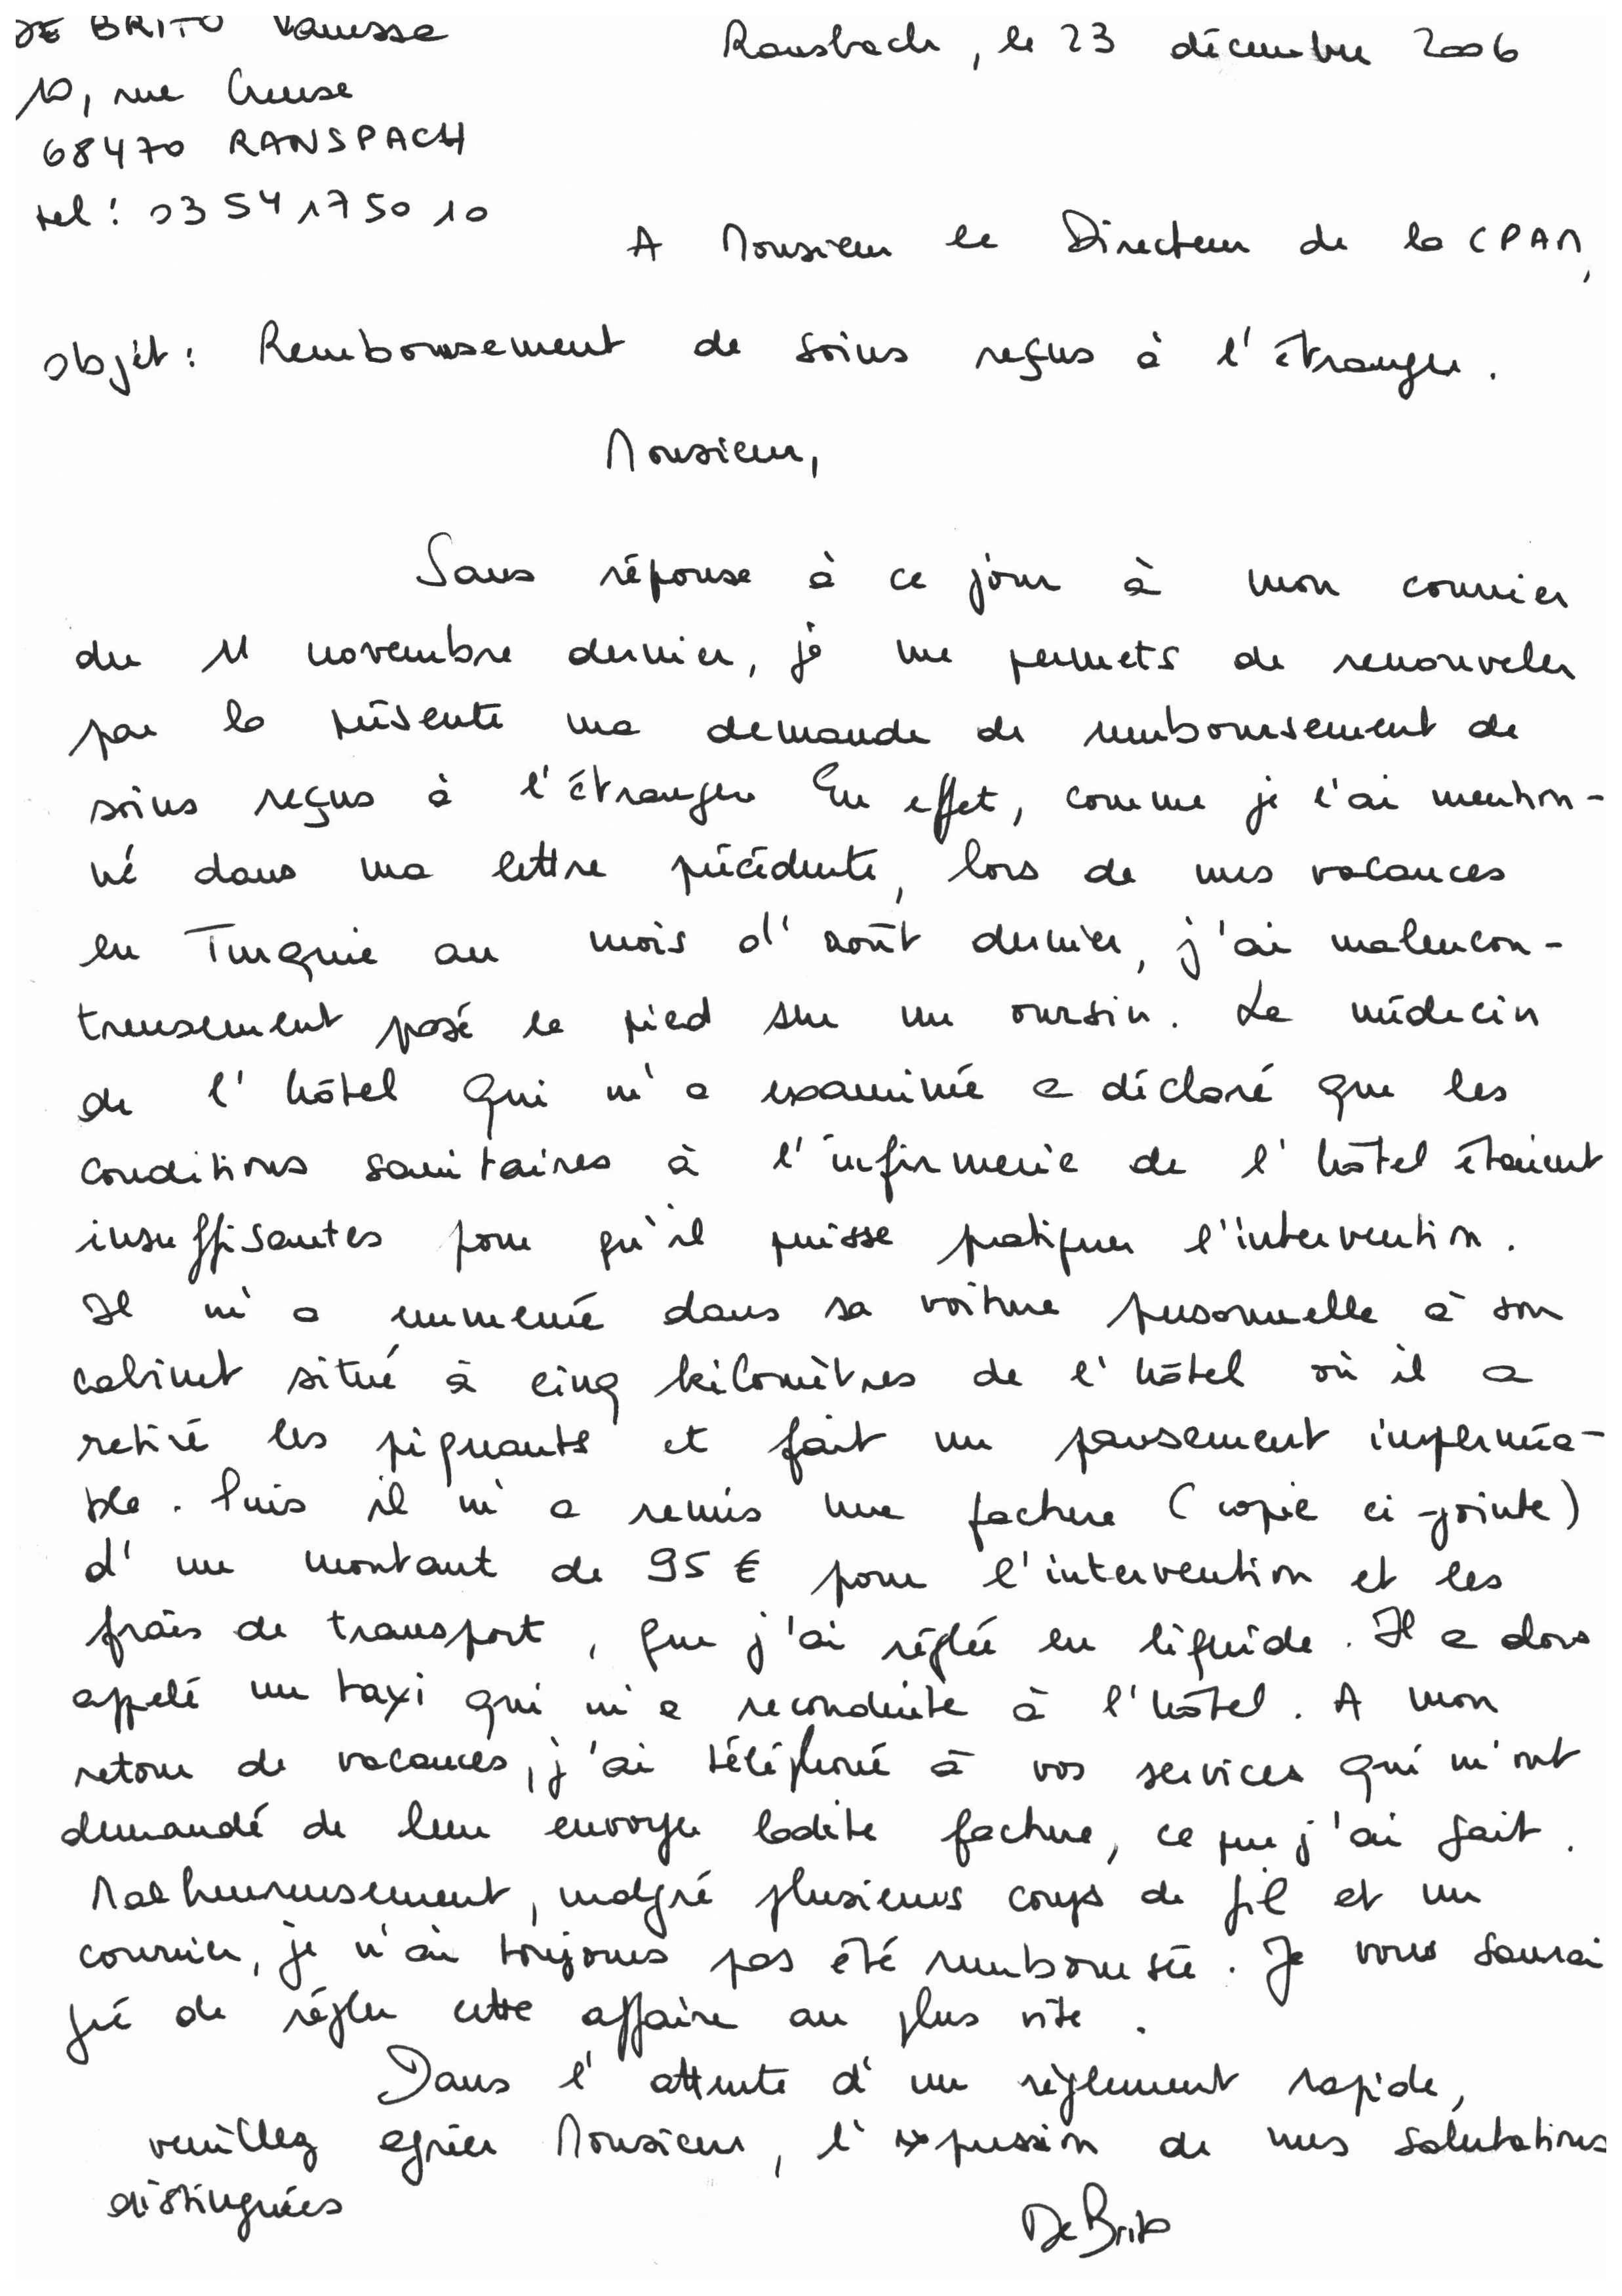 DE BRITO Vanessa
Ransbach, le 23 décembre 2006
10, rue Creuse
68470 RANSPACH
tel : 03 54 17 50 10
A Monsieur le Directeur de la CPAM,
Objet : Remboursement de soins reçus à l'étranger.
Monsieur,
Sans réponse à ce jour à mon courrier
du 11 novembre dernier, je me permets de renouveler
par la présente ma demande de remboursement de
soins reçus à l'étranger En effet, comme je l'ai mention-
né dans ma lettre précédente, lors de mes vacances
en Turquie au mois d'août dernier, j'ai malencon-
treusement posé le pied sur un oursin. Le médecin
de l'hôtel qui m'a examinée a déclaré que les
conditions sanitaires à l'infirmerie de l'hôtel étaient
insuffisantes pour qu'il puisse pratiquer l'intervention.
Il m'a emmenée dans sa voiture personnelle à son
cabinet situé à cinq kilomètres de l'hôtel où il a
retiré les piquants et fait un pansement imperméa-
ble. Puis il m'a remis une facture (copie ci-jointe)
d'un montant de 95 € pour l'intervention et les
frais de transport, que j'ai réglée en liquide. Il a alors
appelé un taxi qui m'a reconduite à l'hôtel. A mon
retour de vacances, j'ai téléphoné à vos services qui m'ont
demandé de leur envoyer ladite facture, ce que j'ai fait.
Malheureusement, malgré plusieurs coups de fil et un
courrier, je n'ai toujours pas été remboursée. Je vous saurai
gré de régler cette affaire au plus vite.
Dans l'attente d'un règlement rapide,
veuillez agréer Monsieur, l'expression de mes salutations
distinguées
De Brito